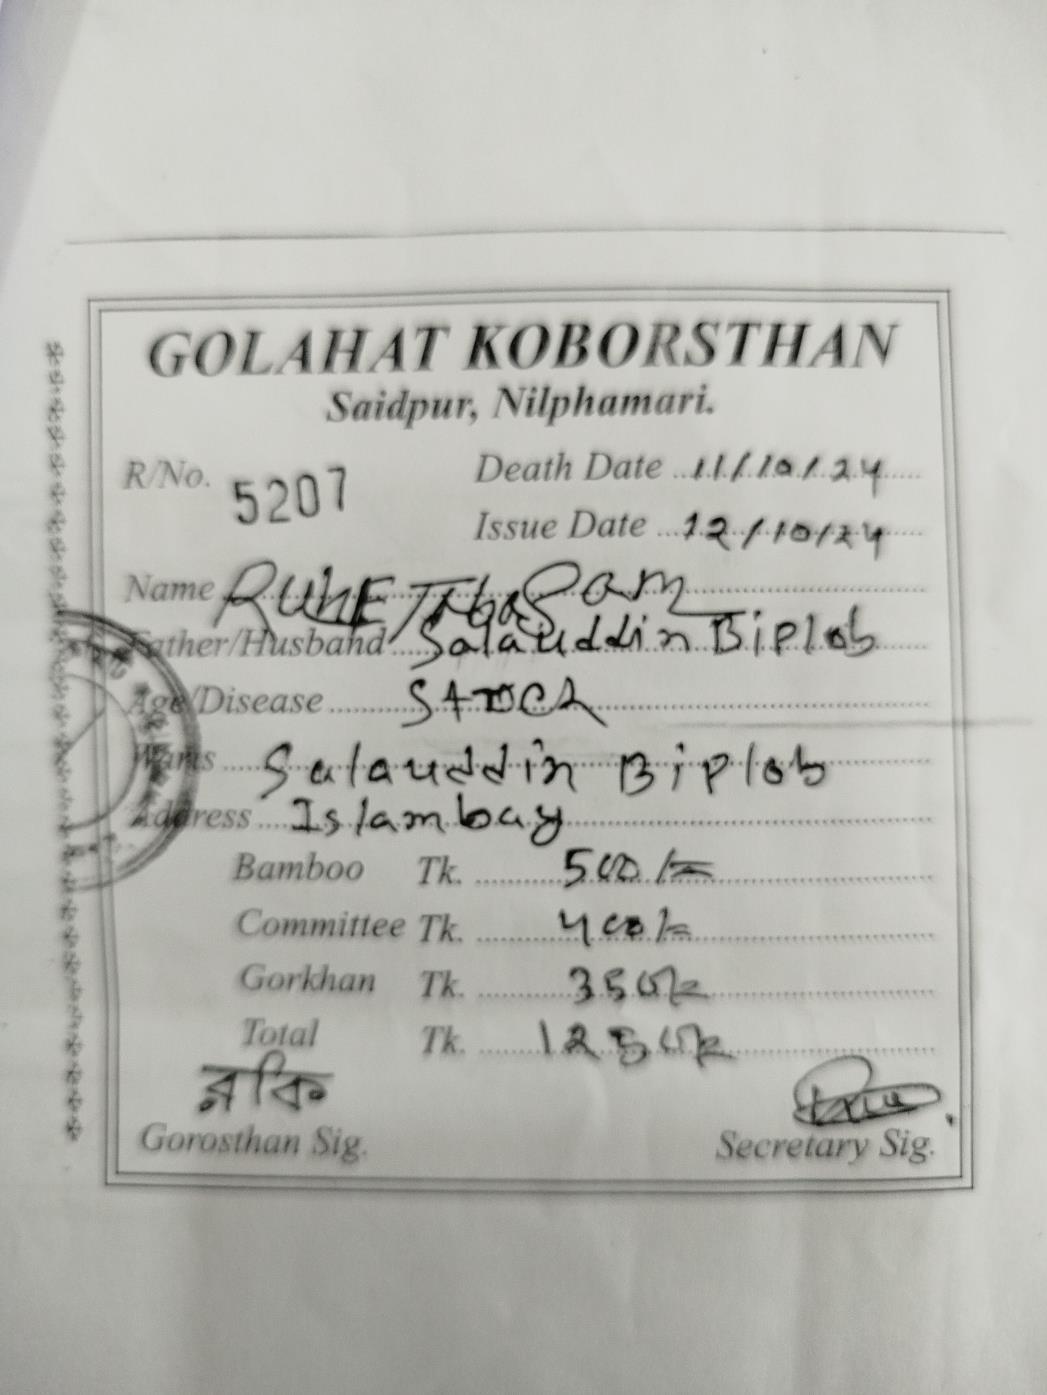 GOLAHAT KOBORSTHAN
Saidpur, Nilphamari.
R/No. 5207
Death Date 11/10/24
Issue Date 12/10/24
Name RUHE TabaSam
Father/Husband Salauddin Biplob
Age/Disease
Waris Salauddin Biplob
Address Islambay
Bamboo Tk. 500/=
Committee Tk. 400/=
Gorkhan Tk. 350/=
Total Tk. 1250/=
রকি
Gorosthan Sig.
Secretary Sig.